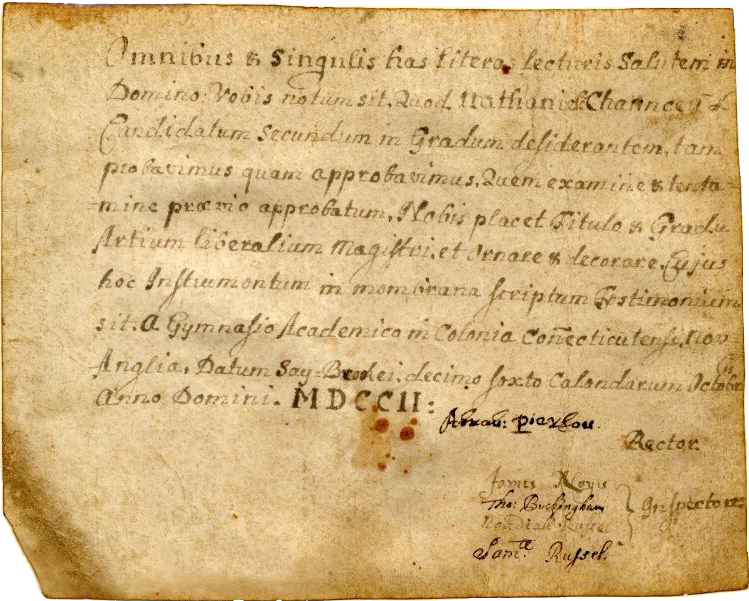 Omnibus & Singulis has literas lecturis Salutem in
Domino: Vobis notum sit. Quod Nathaniel Chauncey
Candidatum Secundum in Gradum desiderantem, tam
probavimus quam approbavimus. Quem examine & tenta=
=mine prævio approbatum, Nobis placet Titulo & Gradu
Artium liberalium Magistri, et Ornare & decorare. Cujus
hoc Instrumentum in membrana scriptum Testimonium
sit. A Gymnasio Academico in Colonia Coñecticutensi, Nov-
-Anglia. Datum Say=Brookei, decimo sexto Calendarum Octobris
Anno Domini. MDCCII:
Abrah: Pierson.
Rector.
James Noyis
Tho: Buckingham
Noadiah Russel
Inspectores
Samll. Russel.